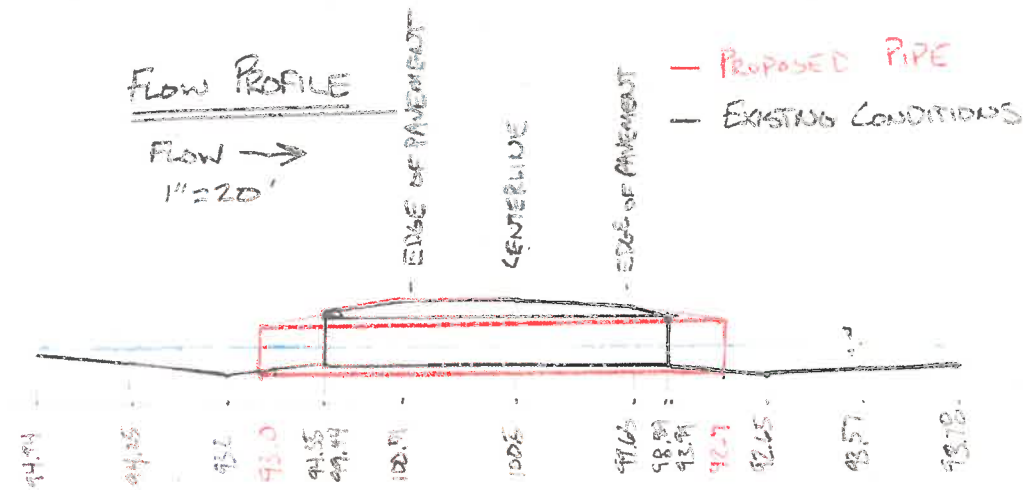 FLOW PROFILE
FLOW →
1"=20'
EDGE OF PAVEMENT
CENTERLINE
EDGE OF PAVEMENT
— PROPOSED PIPE
— EXISTING CONDITIONS
94.94
94.35
93.2
93.0
94.35
99.44
99.65
98.89
93.91
92.65
93.57
93.78